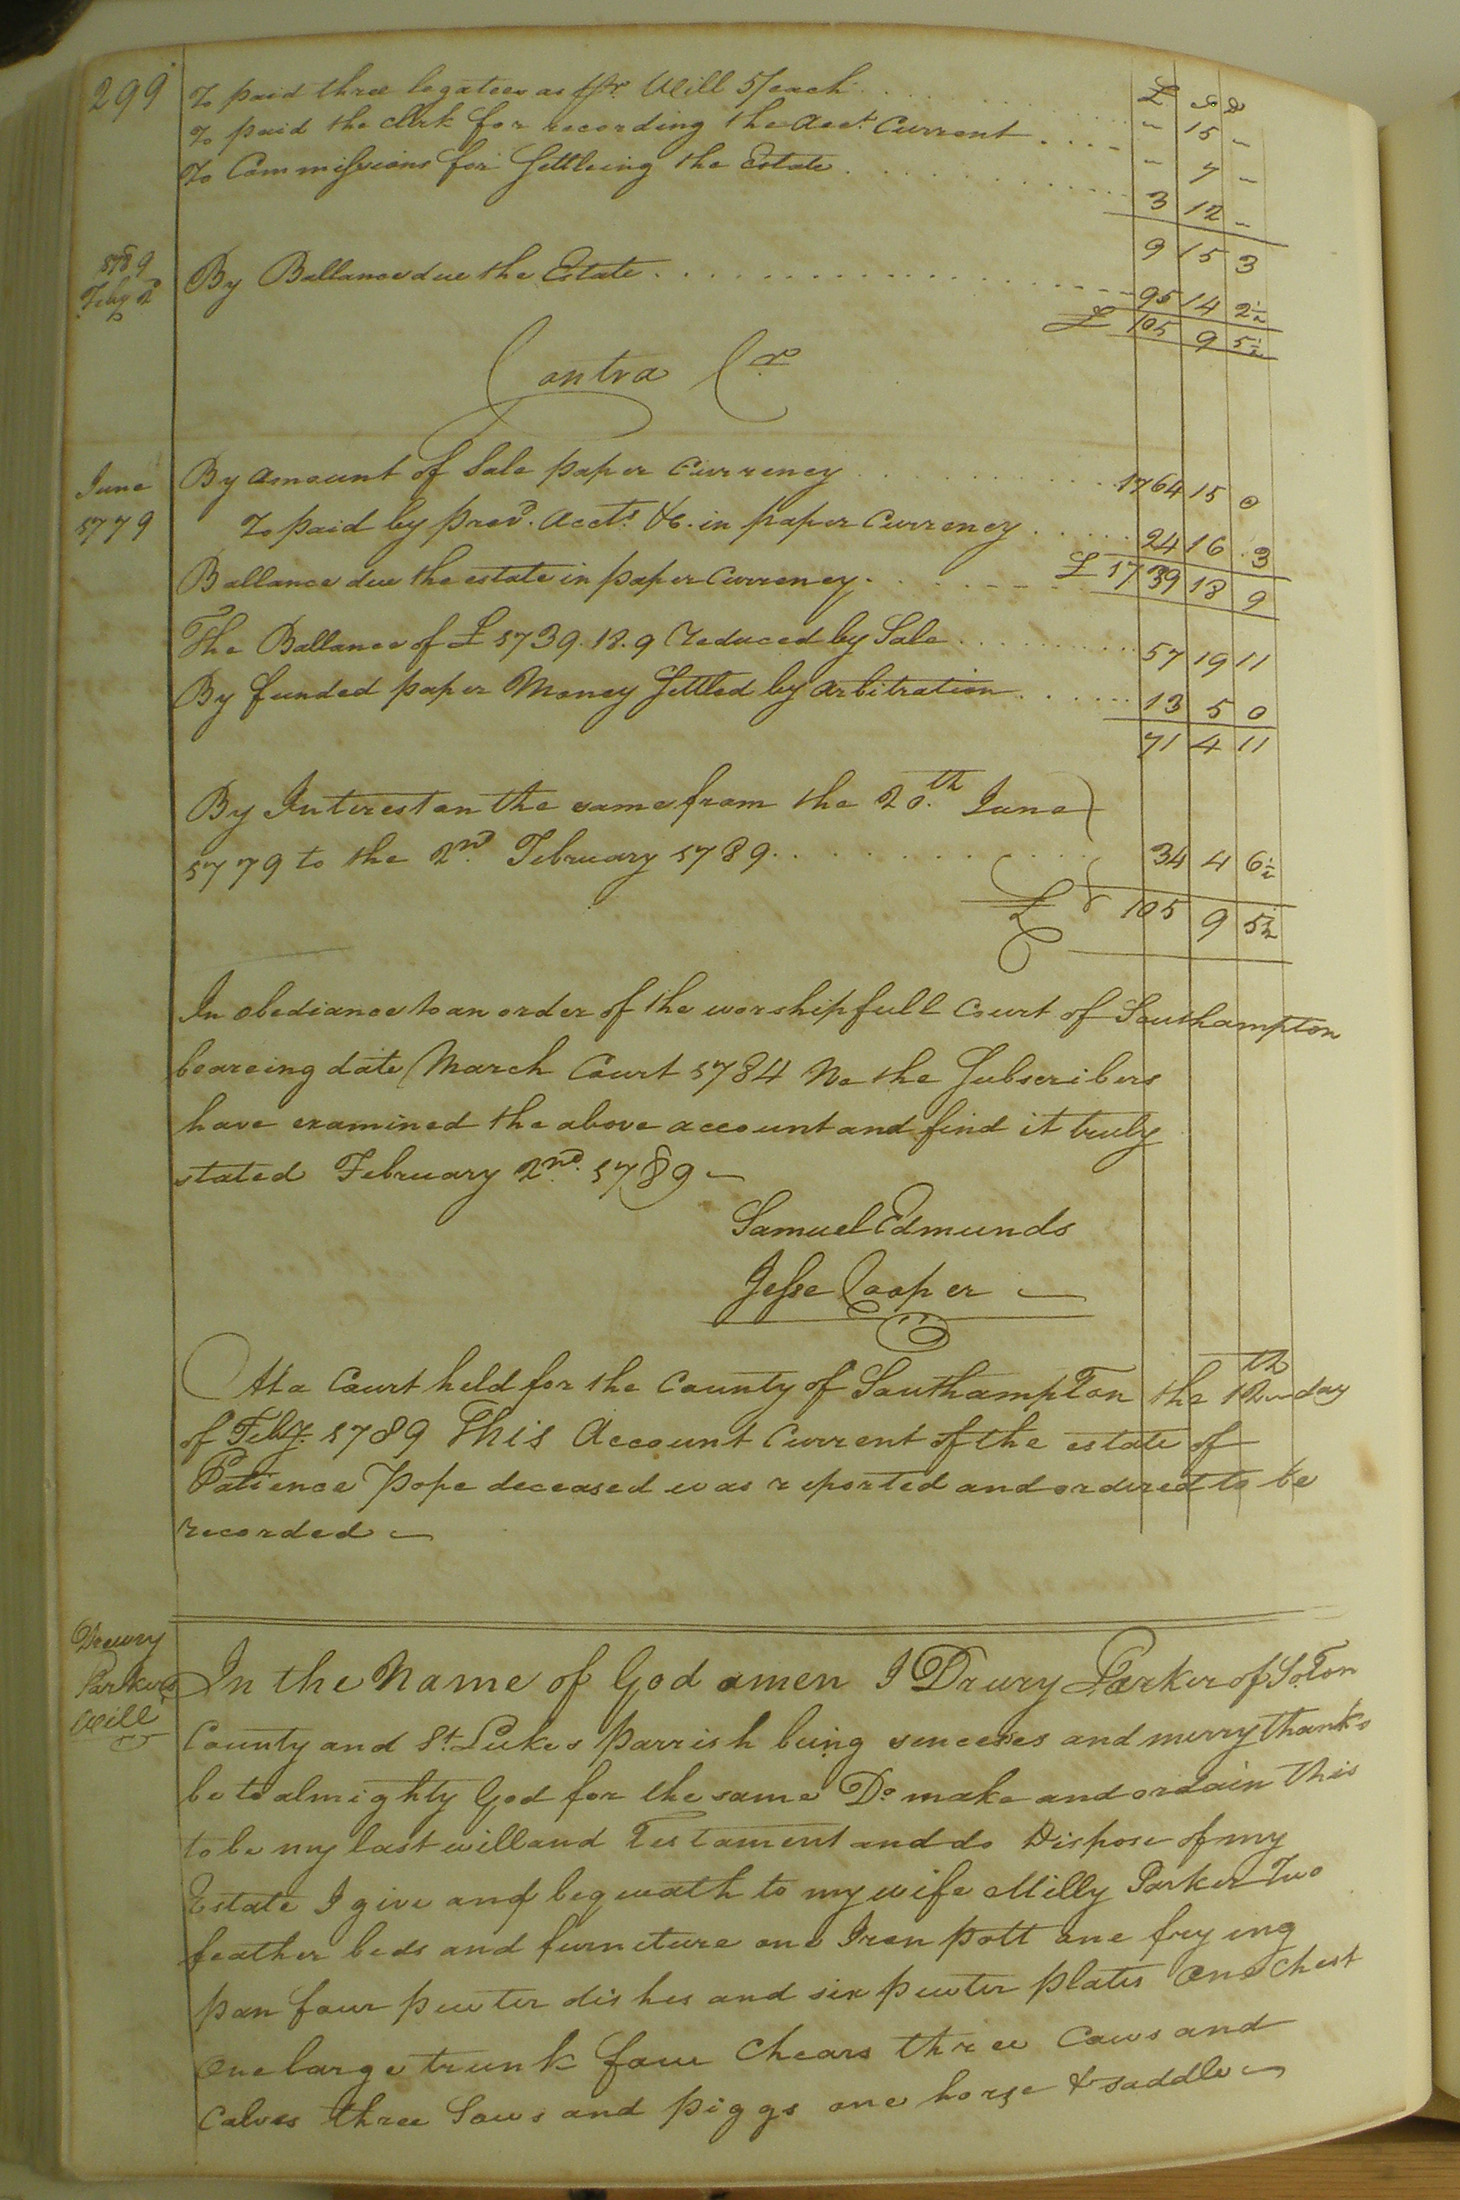 299
£ S D
To paid three legatees as pr. Will 5/ each - 15 -
To paid the clerk for recording the Acct. Current - 7 -
To Commissions for Settleing the Estate 3 12 -
9 15 3
1789
Feby 2d
By Ballance due the Estate 95 14 2½
£ 105 9 5½
Contra Cr.
June
1779
By amount of Sale paper Currency 1764 15 0
To paid by prov'd. Accts. &c. in paper Currency 24 16 3
Ballance due the estate in paper Currency £ 1739 18 9
The Ballance of £ 1739.18.9 reduced by Sale 57 19 11
By funded paper Money Settled by Arbitration 13 5 0
71 4 11
By Interest on the same from the 20.th June
1779 to the 2nd. February 1789 34 4 6½
£ 105 9 5½
In obediance to an order of the worshipfull Court of Southampton
beareing date March Court 1784 We the Subscribers
have examined the above account and find it truly
stated February 2nd. 1789
Samuel Edmunds
Jesse Cooper
At a Court held for the County of Southampton the 12th day
of Feby. 1789 This Account Current of the estate of
Patience Pope deceased was reported and ordered to be
recorded
Drewry
Parkers
Will
In the Name of God amen I Drury Parker of So.Ton
County and St. Lukes Parrish being senceses and murry thanks
be to almighty God for the same Do make and ordain this
to be my last will and Testament and do Dispose of my
Estate I give and beqwath to my wife Milly Parker Two
feather beds and furniture one Iron pott one frying
pan four pewter dishes and six pewter plates One Chest
One large trunk four Chears three Cows and
Calves three Sows and piggs one horse & saddle